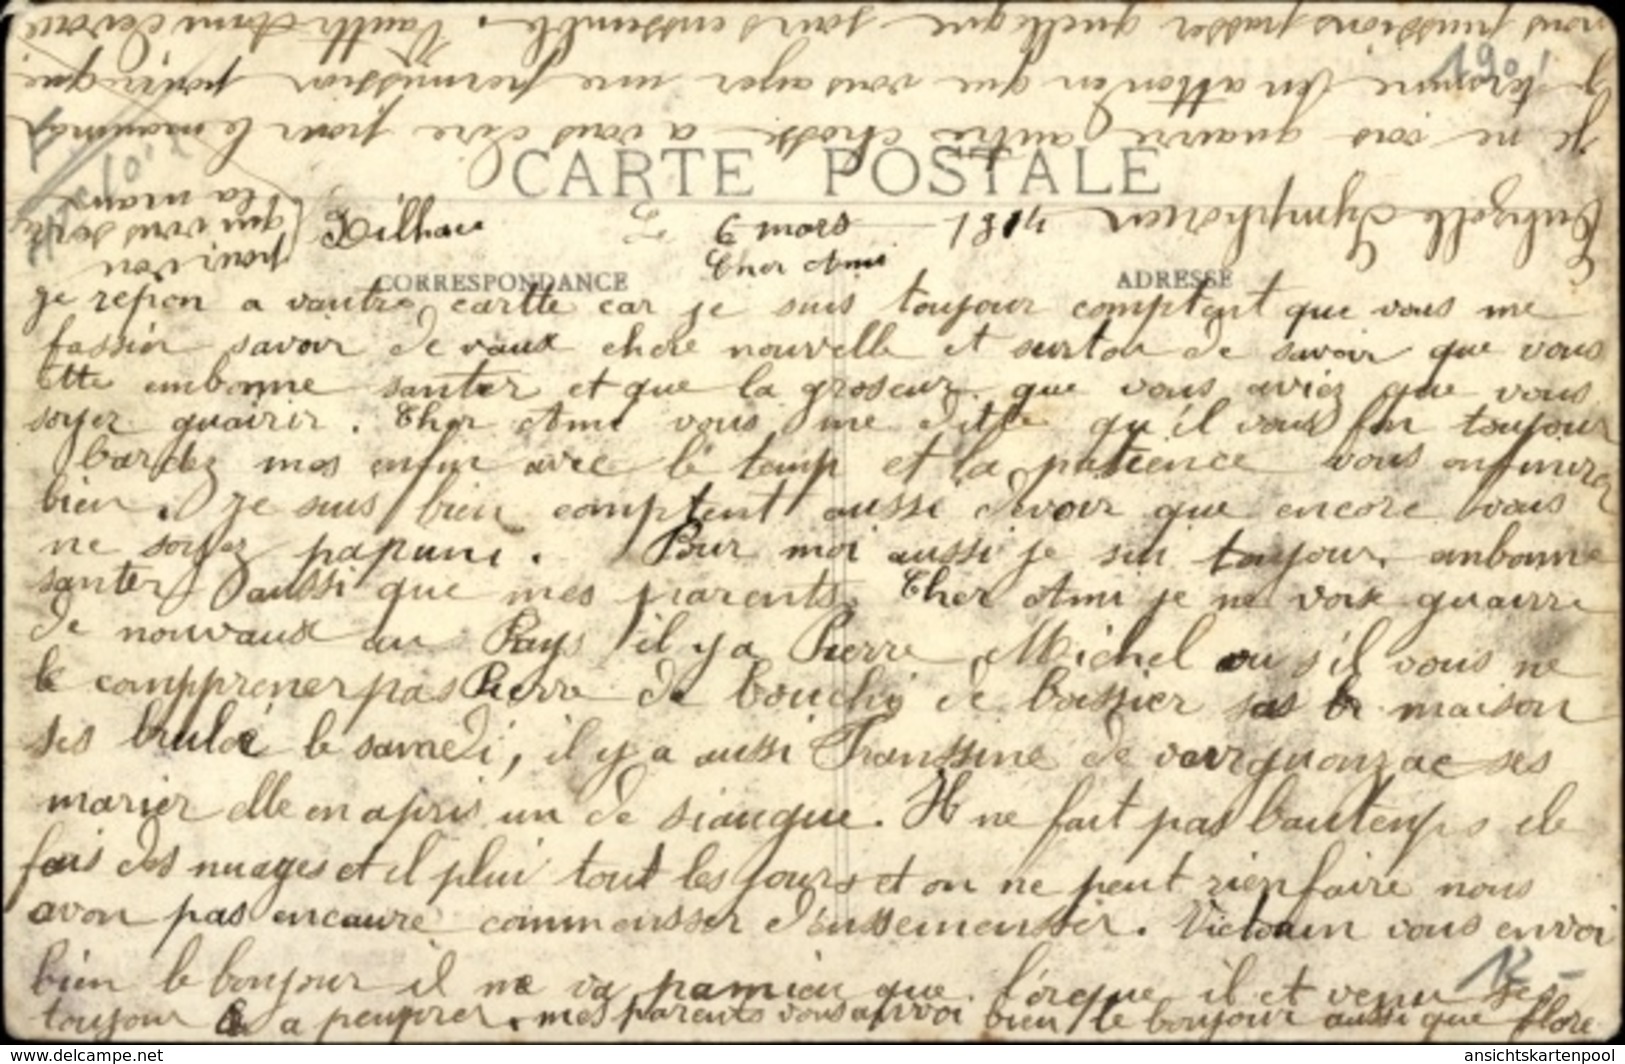 CARTE POSTALE
Dilhac Le 6 mars 1914
Cher Ami
CORRESPONDANCE ADRESSE
je repon a vautre cartte car je suis toujour comptent que vous me
fassier savoir de vaux chere nouvelle et surtou de savoir que vous
ette anbonne santer et que la groseur que vous aviez que vous
soyer guairir. Cher Ami vous me ditte qu'il vous fon toujour
bardez mes enfin avec le temp et la patience vous onfinirez
bien. je suis bien comptent aussi devoir que encore vous
ne soyez papuni. Pour moi aussi je sui toujour anbonne
santer aussi que mes parents. Cher Ami je ne vois guairre
de nouvaux au Pays il y a Pierre Michel ou s'il vous ne
le compprener pas Pierre de bouchi de boissier sas maison
ses brulai le samedi, il y a aussi Franssine de verguonzac ses
marier elle en apris un de siaugue. Il ne fait pas bautemps ile
fais des nuages et il plui tout les jours et on ne peut rien faire nous
avon pas encaure commensser d'enssemensser. Victorin vous envoi
bien le bonjour il ne va pamieu que lorque il et venu ses
toujour a peuprer. mes parents vous anvoi bien le bonjour aussi que flore
Je ne vois guairre autre chosse a vous dire pour le moment
je termine En attenden que vous ayer une permission pour que
nous puissions passer quelque jours enssemble. Vautre Ami devoué
Symphorien
pour voi
qui vous serre
la main
190
12 -
ansichtskartenpool
www.delcampe.net